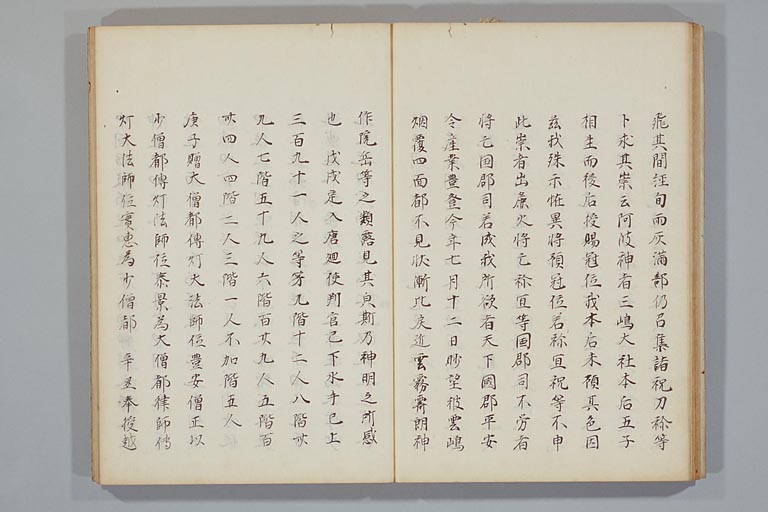 飛其間経旬而灰満部仍召集諸祝刀祢等
卜求其祟云阿波神者三嶋大社本后五子
相生而後后授賜冠位我本后未預其色因
茲我殊示恠異将預冠位若祢宜祝等不申
此祟者出麁火将亡祢宜等国郡司不労者
将亡国郡司若成我所欲者天下國郡平安
令産業豊登今年七月十二日眇望彼雲嶋
烟覆四面都不見状漸比戻近雲霧霽朗神
作院岳等之類露見其貞斯乃神明之所感
也 戊戌定入唐廻使判官已下水手已上
三百九十一人之等第九階十二人八階卅
九人七階五十九人六階百卅九人五階百
卅四人四階二人三階一人不加階五人
庚子贈大僧都傳灯大法師位豊安僧正以
少僧都傳灯法師位泰景為大僧都律師傳
灯大法師位實恵為少僧都 辛丑奉授越